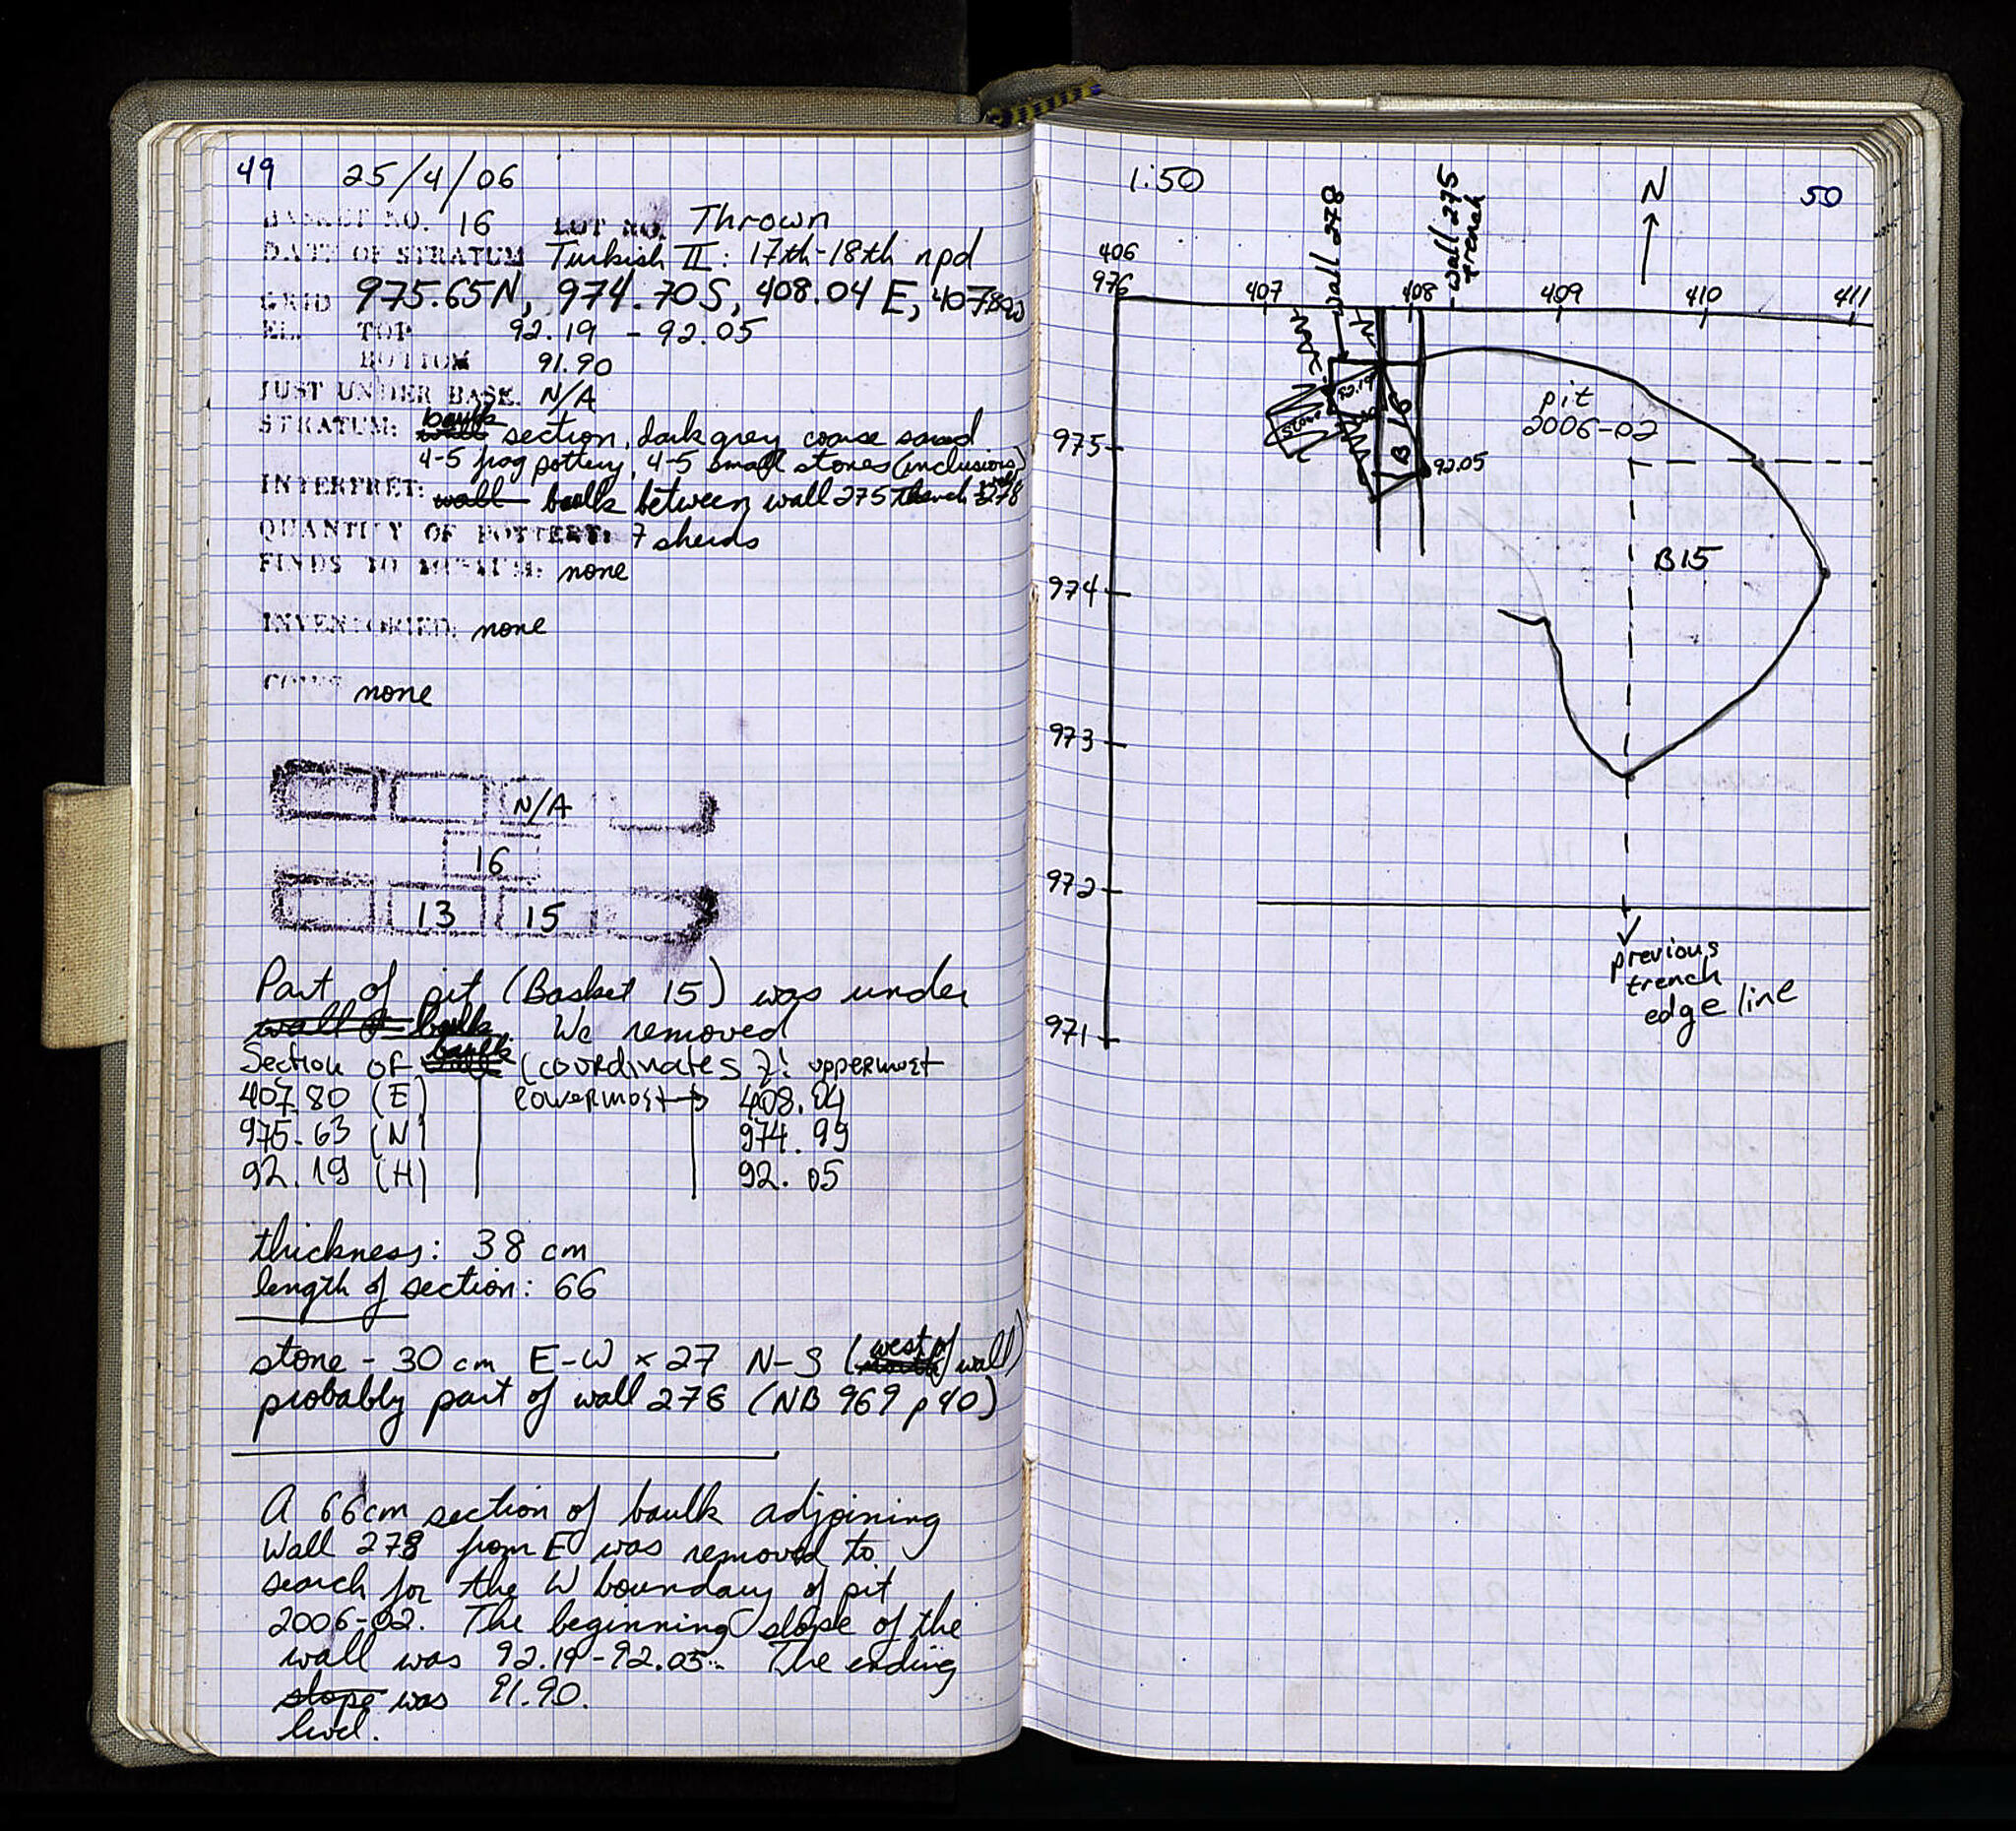 49 25/4/06
BASKET NO. 16 LOT NO. Thrown
DATE OF STRATUM Turkish II: 17th-18th npd
GRID 975.65N, 974.70S, 408.04 E, 40780W
EL. TOP 92.19 - 92.05
BOTTOM 91.90
JUST UNDER BASK. N/A
STRATUM: baulk section, dark grey coarse sand
4-5 frag pottery, 4-5 small stones (inclusions)
INTERPRET: wall baulk between wall 275 trench & 278
QUANTITY OF POTTERY: 7 sherds
FINDS TO MUSEUM: none
INVENTORIED: none
COINS none
N/A
16
13 15
Part of pit (Basket 15) was under
wall baulk. We removed
Section of baulk (coordinates): uppermost
407.80 (E) lowermost → 408.04
975.63 (N) 974.99
92.19 (H) 92.05
thickness: 38 cm
length of section: 66
stone - 30 cm E-W × 27 N-S (west of wall)
probably part of wall 278 (NB 969 p40)
A 66cm section of baulk adjoining
Wall 278 from E was removed to
search for the W boundary of pit
2006-02. The beginning slope of the
wall was 92.19-92.05. The ending
slope was 91.90.
level.
1:50
wall 278
wall 275
trench
N
50
406
976
407
408
409
410
411
92.19
stone
B16
92.05
pit
2006-02
B15
975
974
973
972
971
previous
trench
edge line